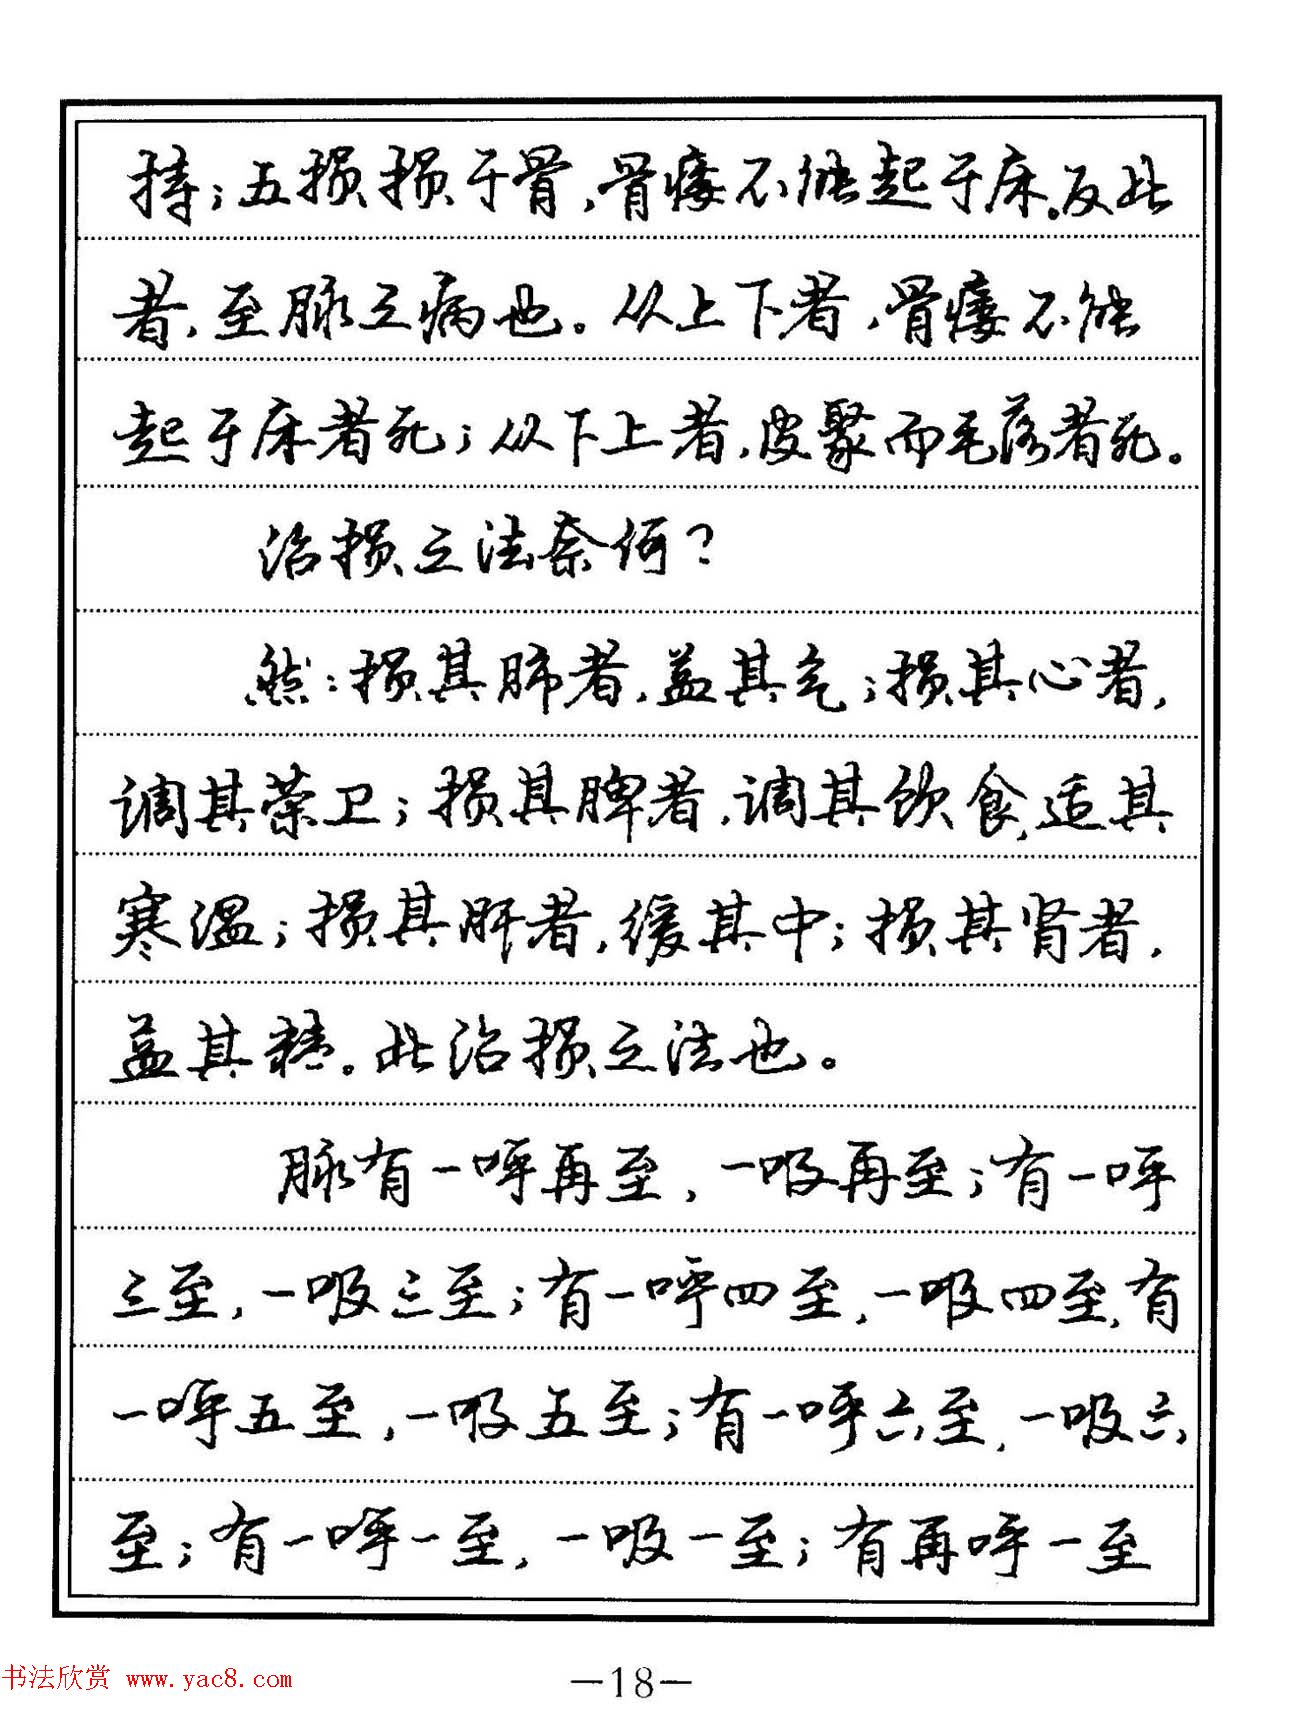 持；五损损于骨，骨痿不能起于床。反此
者，至脉之病也。从上下者，骨痿不能
起于床者死；从下上者，皮聚而毛落者死。
治损之法奈何？
然：损其肺者，益其气；损其心者，
调其荣卫；损其脾者，调其饮食，适其
寒温；损其肝者，缓其中；损其肾者，
益其精。此治损之法也。
脉有一呼再至，一吸再至；有一呼
三至，一吸三至；有一呼四至，一吸四至，有
一呼五至，一吸五至；有一呼六至，一吸六
至；有一呼一至，一吸一至；有再呼一至
书法欣赏 www.yac8.com
—18—